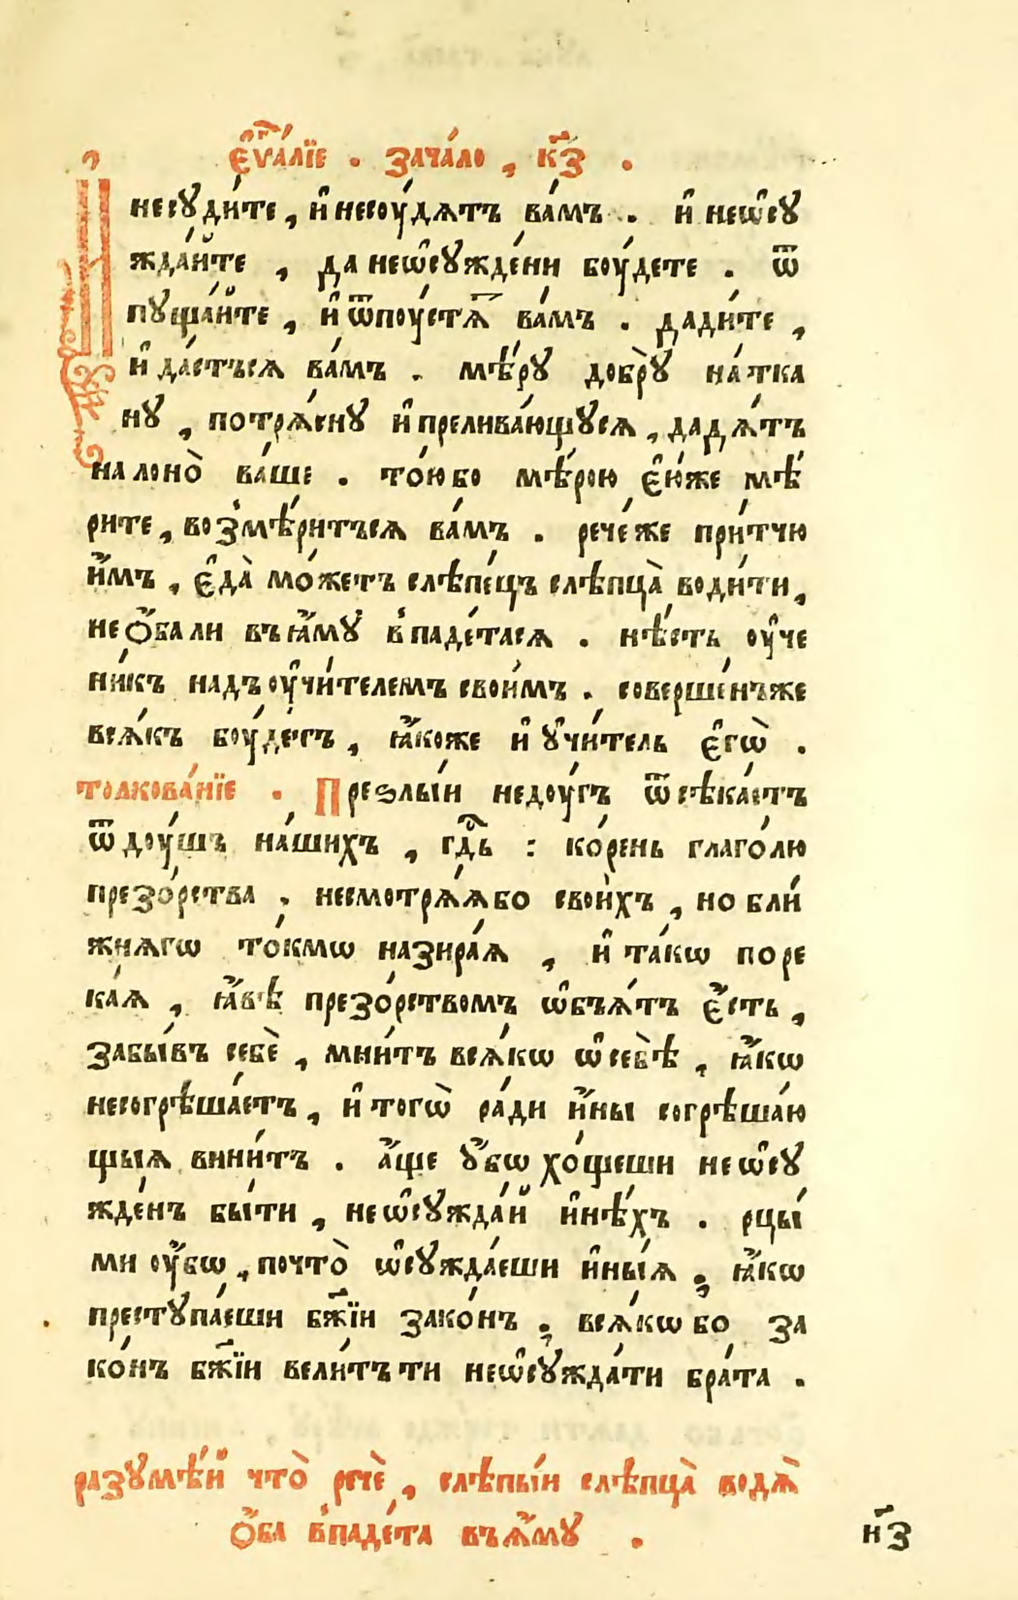 є҆ѵⷢ҇а́лїе . зача́ло , к҃з .
И несꙋди́те , и҆ несоу́дѧтъ ва́мъ . и҆ неѡ҆сꙋ
жда́йте , да неѡ҆сꙋжде́ни боу́дете . ѿ
пꙋща́йте , и҆ ѿпоу́стѧⷮ ва́мъ . дади́те ,
и҆ да́стьсѧ ва́мъ . мѣ́рꙋ добрꙋ̀ на́тка
нꙋ , потрѧ́снꙋ и҆ прелива́ющꙋсѧ , дадѧ́тъ
на лоно̀ ва́ше . то́ю бо мѣ́рою є҆́юже мѣ́
рите , возмѣ́ритьсѧ ва́мъ . рече́же при́тчю
и҆́мъ , є҆да̀ мо́жетъ слѣпе́цъ слѣпца̀ води́ти ,
не ѻ҆́ба ли въ ꙗ҆́мꙋ впаде́тасѧ . нѣ́сть оу҆че
ни́къ надъ оу҆чи́телемъ свои́мъ . соверше́нъже
всѧ́къ боу́детъ , ꙗ҆́коже и҆ ꙋ҆чи́тель є҆гѡ̀ .
толкова́нїе . Презлы́и недоу́гъ ѿсѣка́етъ
ѿ доу́шъ на́шихъ , гⷭ҇дь : ко́рень глаго́лю
презо́рства . несмотрѧ́ѧбо свои́хъ , но бли́
жнѧгѡ то́кмѡ назира́ѧ , и҆ та́кѡ поре
ка́ѧ , ꙗ҆́вѣ презо́рством̾ъ ѡ҆б̾ѧ́тъ є҆́сть ,
забы́въ себѐ , мни́тъ всѧ́кѡ ѡ҆ себѣ̀ , ꙗ҆́кѡ
несогрѣша́етъ , и҆ тогѡ̀ ра́ди и҆́ны согрѣша́ю
щыѧ вини́тъ . а҆́ще ꙋ҆́бѡ хо́щеши не ѡ҆сꙋ
жде́нъ бы́ти , неѡ҆сꙋжда́й и҆нѣ́хъ . рцы́
ми оу҆́бѡ , почто̀ ѡ҆сꙋжда́еши и҆ны́ѧ , ꙗ҆́кѡ
престꙋпа́еши бж҃їи зако́нъ ; всѧ́кѡ бо за
ко́нъ бж҃їи вели́тъ ти неѡ҆сꙋжда́ти бра́та .
разꙋмѣ́й что̀ речѐ , слѣпы́и слѣпца̀ водѧ̀
ѻ҆́ба впаде́та въ ꙗ҆́мꙋ .
н҃з